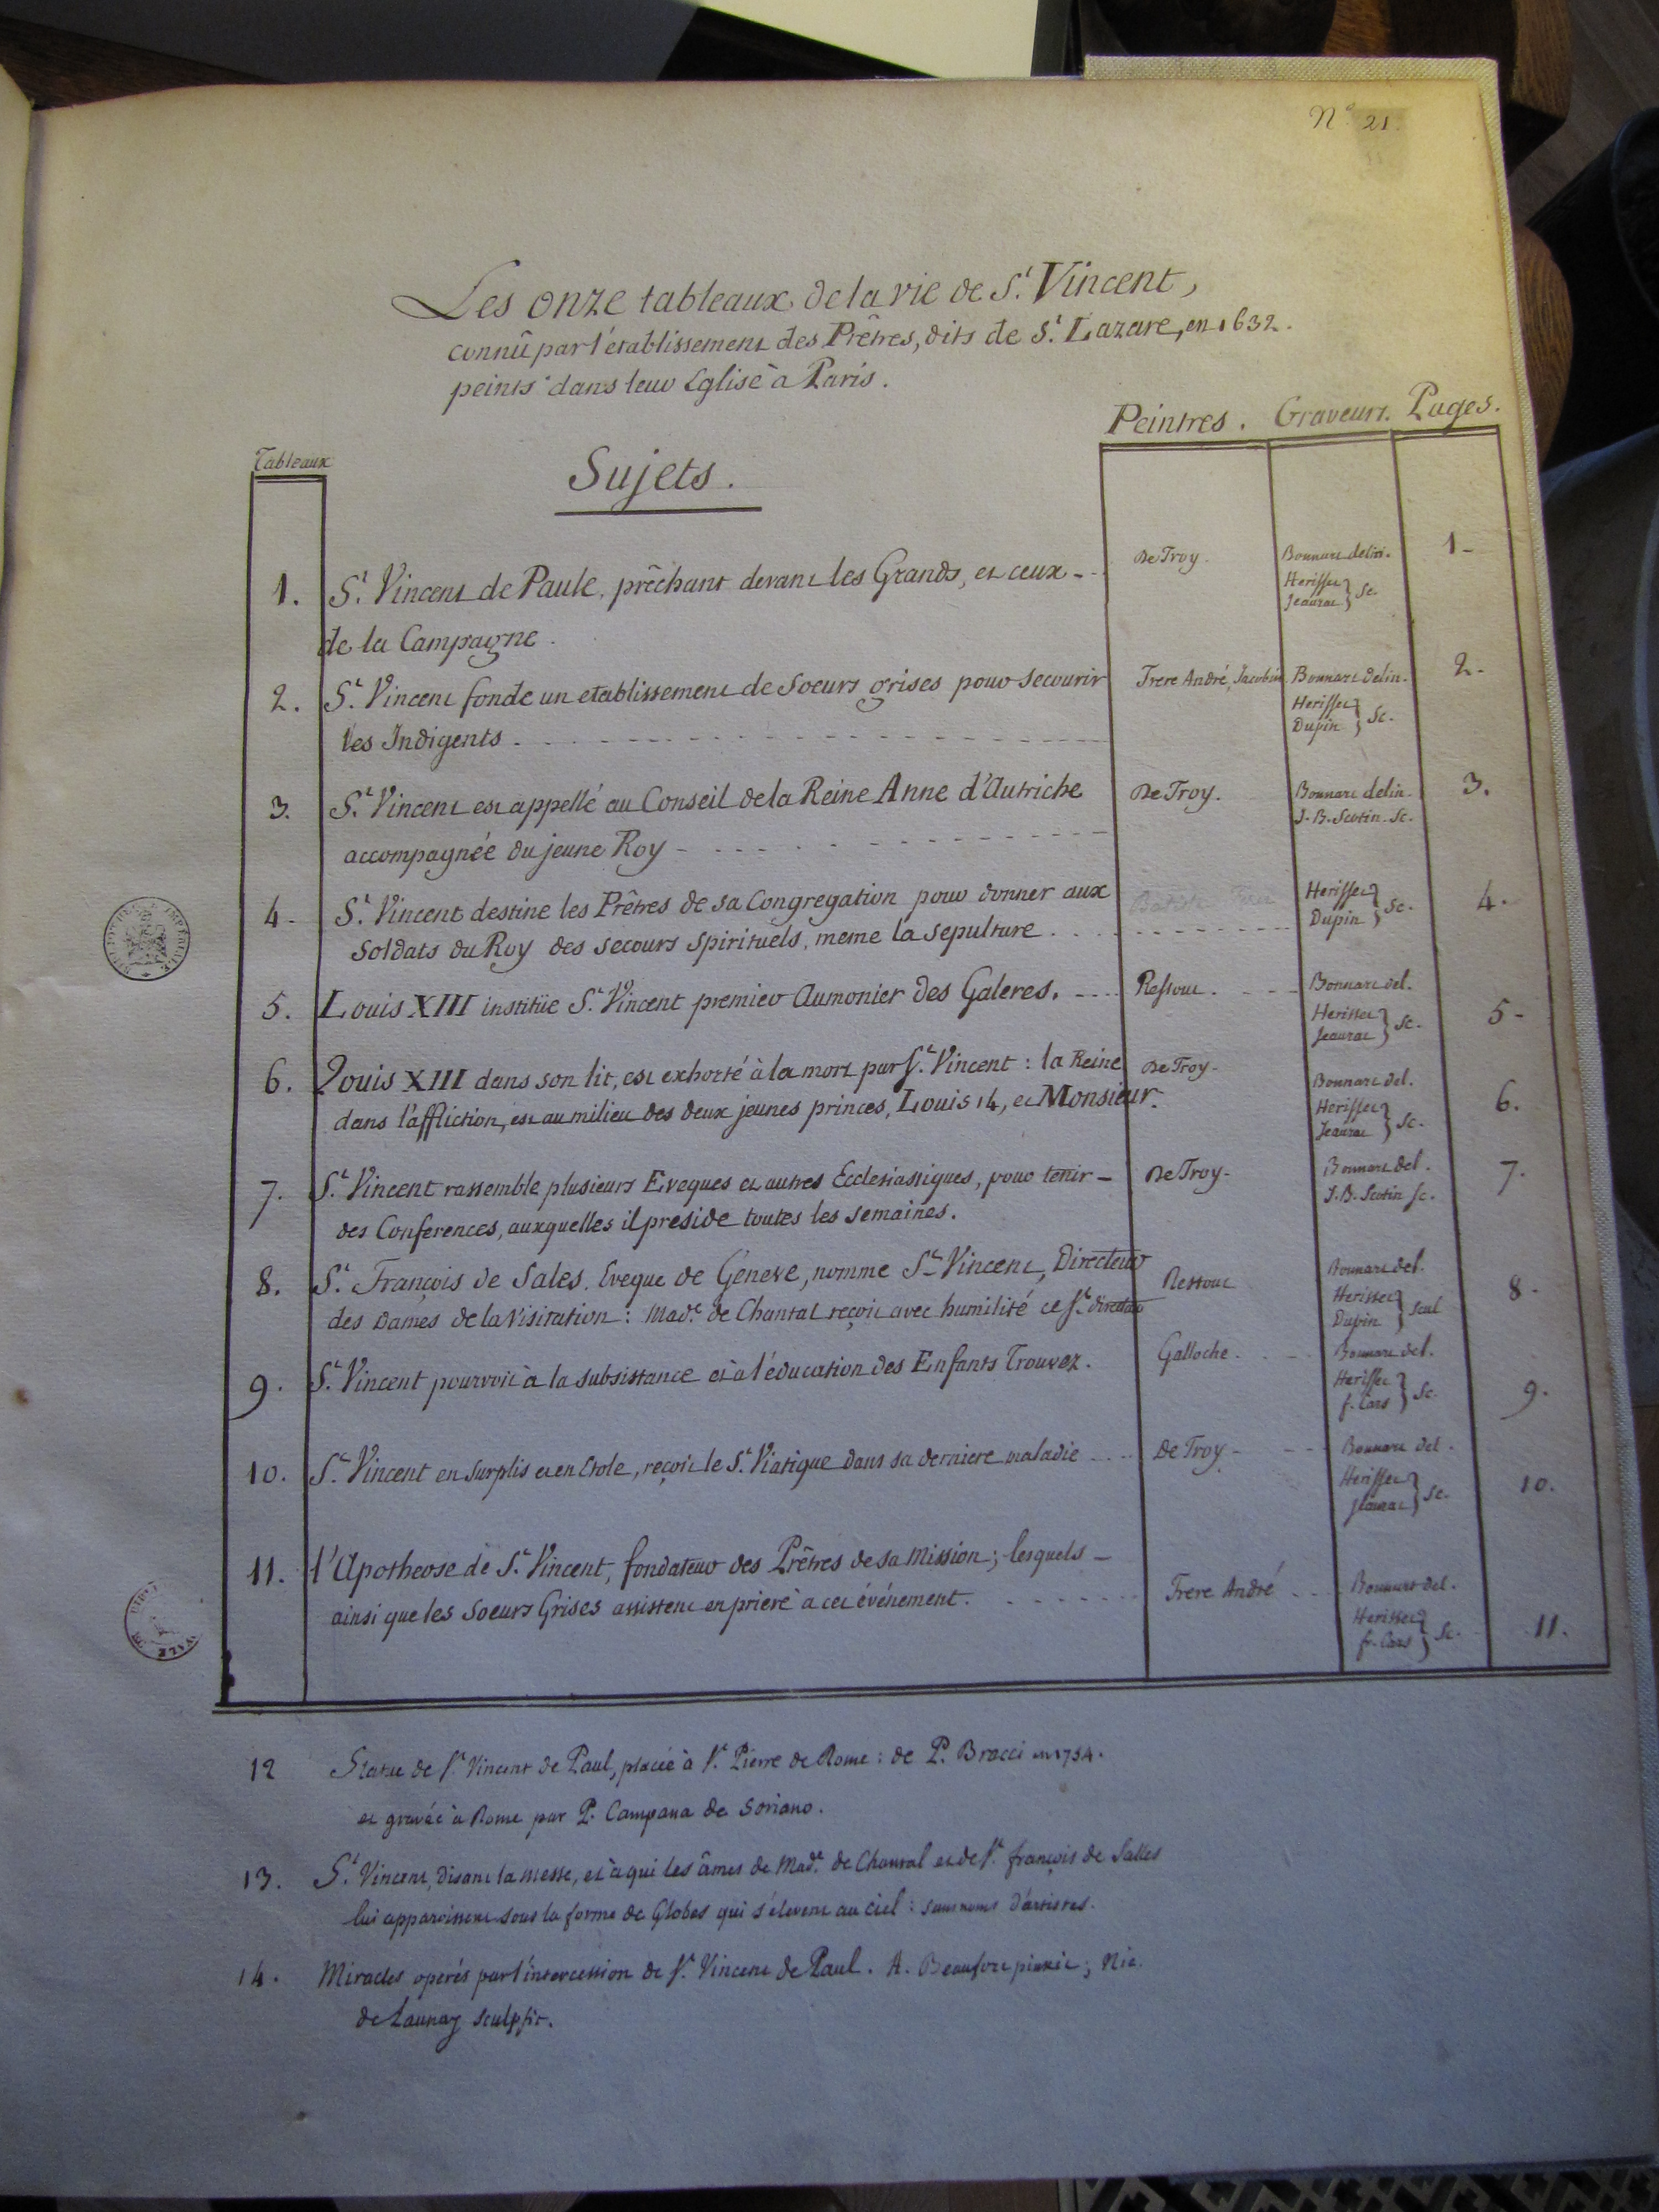 N.° 21.
Les onze tableaux de la vie de S.t Vincent,
connû par l'établissement des Prêtres, dits de S.t Lazare, en 1632.
peints dans leur Eglise à Paris.
Tableaux
Sujets.
Peintres. Graveurs. Pages.
1. S.t Vincent de Paule, prêchant devant les Grands, et ceux - De Troy. Bonnart delin. 1-
de la Campagne. Herisset Jeaurat } Sc.
2. S.t Vincent fonde un etablissement de Soeurs grises pour secourir Frere André, Jacobin Bonnart Delin. 2-
les Indigents. Herisset Dupin } Sc.
3. S.t Vincent est appellé au Conseil de la Reine Anne d'Autriche De Troy. Bonnart delin. 3.
accompagnée du jeune Roy - J. B. Scotin Sc.
4- S.t Vincent destine les Prêtres de sa Congregation pour donner aux Herisset Dupin } Sc. 4.
Soldats du Roy des secours spirituels, meme la sepulture.
5. Louis XIII institüe S.t Vincent premier Aumonier des Galeres. Restout. Bonnart del. 5-
Herisset Jeaurat } Sc.
6. Louis XIII dans son lit, est exhorté à la mort par S.t Vincent : la Reine De Troy- Bonnart del. 6.
dans l'affliction, est au milieu des deux jeunes princes, Louis 14, et Monsieur. Herisset Jeaurat } Sc.
7. S.t Vincent rassemble plusieurs Eveques et autres Ecclesiastiques, pour tenir - De Troy- Bonnart del. 7.
des Conferences, auxquelles il preside toutes les semaines. J. B. Scotin Sc.
8. S.t François de Sales, Eveque de Géneve, nomme S.t Vincent, Directeur Restout Bonnart del. 8-
des Dames de la Visitation : Mad.e de Chantal reçoit avec humilité ce S.t directeur Herisset Dupin } Scul
9. S.t Vincent pourvoit à la subsistance et à l'éducation des Enfants Trouvez. Galloche. Bonnart del. 9.
Herisset f. Cars } Sc.
10. S.t Vincent en Surplis et en Etole, reçoit le S.t Viatique dans sa derniere maladie De Troy- Bonnart del. 10.
Herisset Jeaurat } Sc.
11. l'Apotheose de S.t Vincent, fondateur des Prêtres de sa Mission; lesquels - Frere André Bonnart del. 11.
ainsi que les Soeurs Grises assistent en priere à cet événement. Herisset fr. Cars } Sc.
12 Statue de S.t Vincent de Paul, placée à S.t Pierre de Rome : de P. Bracci en 1754.
et gravée à Rome par P. Campana de Soriano.
13. S.t Vincent, disant la messe, et à qui les âmes de Mad.e de Chantal et de S.t françois de Salles
lui apparoissent sous la forme de Globes qui s'elevent au ciel : sans noms d'artistes.
14. Miracles operés par l'intercession de S.t Vincent de Paul. A. Beaufort pinxit; Nic.
de Launay sculpsit.